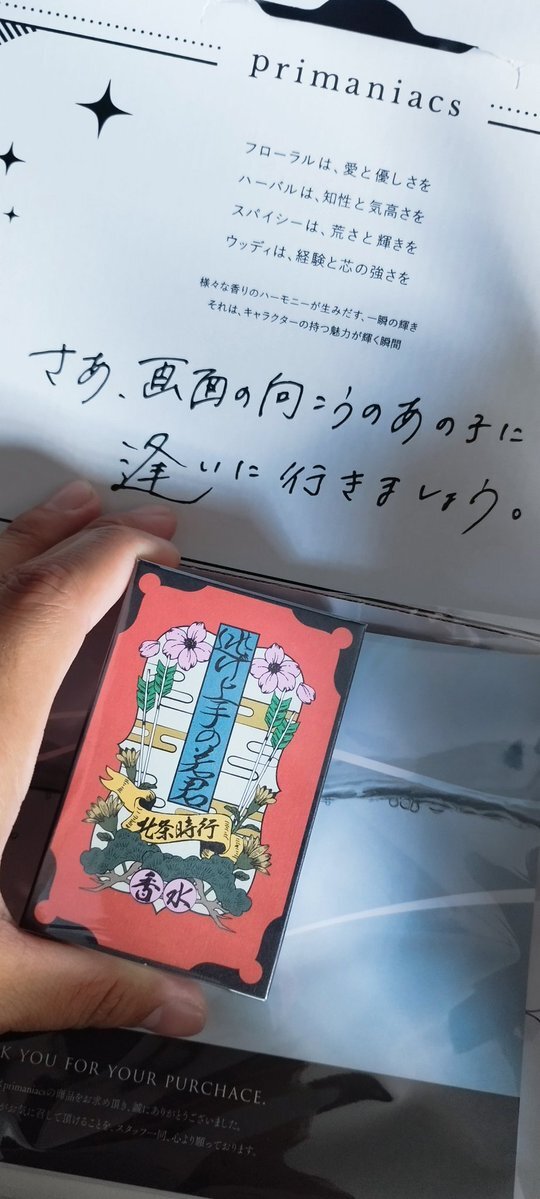 primaniacs
フローラルは、愛と優しさを
ハーバルは、知性と気高さを
スパイシーは、荒さと輝きを
ウッディは、経験と芯の強さを
様々な香りのハーモニーが生みだす、一瞬の輝き
それは、キャラクターの持つ魅力が輝く瞬間
さあ、画面の向こうのあの子に
逢いに行きましょう。
逃げ上手の若君
北条時行
香水
K YOU FOR YOUR PURCHACE.
primaniacsの商品をお求め頂き、誠にありがとうございました。
お気に召して頂けることを、スタッフ一同、心より願っております。